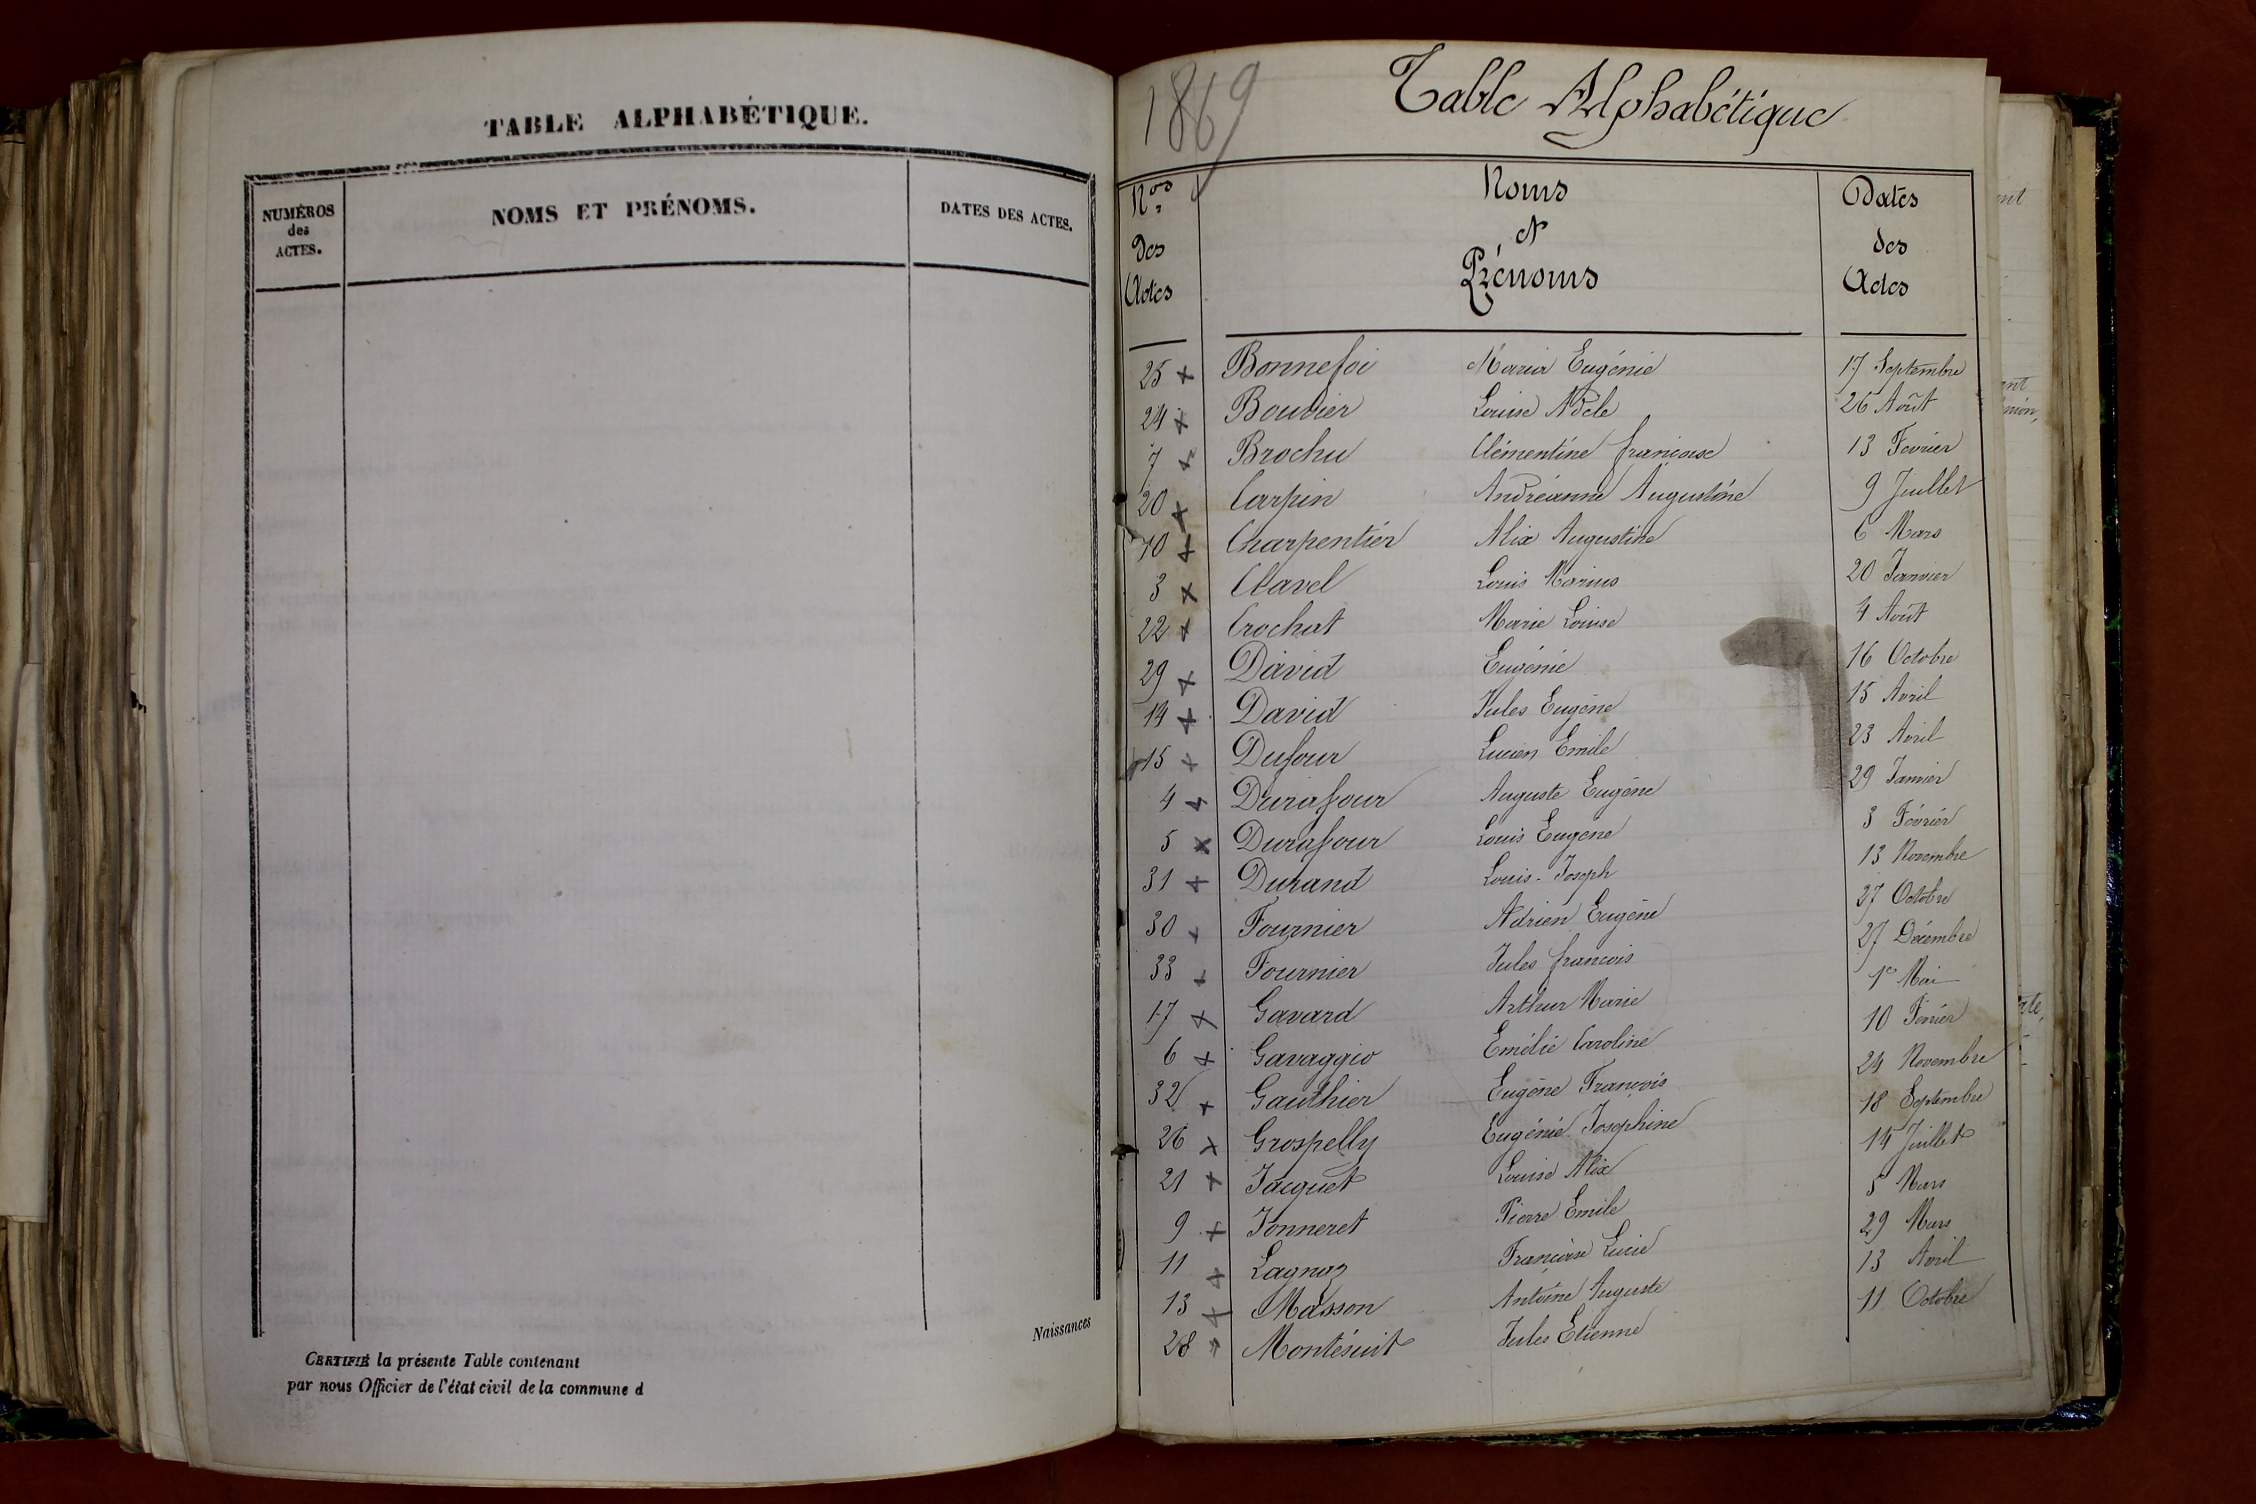 TABLE ALPHABÉTIQUE.
NUMÉROS des ACTES.
NOMS ET PRÉNOMS.
DATES DES ACTES.
Naissances
CERTIFIÉ la présente Table contenant
par nous Officier de l'état civil de la commune d
1869
Table Alphabétique
Nos des Actes
Noms et Prénoms
Dates des Actes
25 Bonnefoi Maria Eugénie 17 Septembre
24 Bouvier Louise Adele 26 Août
7 Brochu Clémentine francoise 13 Fevrier
20 Carpin Andréanne Augustine 9 Juillet
10 Charpentier Alix Augustine 6 Mars
3 Clavel Louis Marius 20 Janvier
22 Crochat Marie Louise 4 Août
29 David Eugénie 16 Octobre
14 David Jules Eugène 15 Avril
15 Dufour Lucien Emile 23 Avril
4 Durafour Auguste Eugène 29 Janvier
5 Durafour Louis Eugene 3 Février
31 Durand Louis-Joseph 13 Novembre
30 Fournier Adrien Eugène 27 Octobre
33 Fournier Jules francois 27 Décembre
17 Gavard Arthur Marie 1er Mai
6 Gavaggio Emélie Caroline 10 Février
32 Gauthier Eugène François 24 Novembre
26 Grospelly Eugénie Josephine 18 Septembre
21 Jacquet Louise Alix 14 Juillet
9 Jonneret Pierre Emile 5 Mars
11 Lagnaz Françoise Lucie 29 Mars
13 Masson Antoine Auguste 13 Avril
28 Montésuit Jules Etienne 11 Octobre